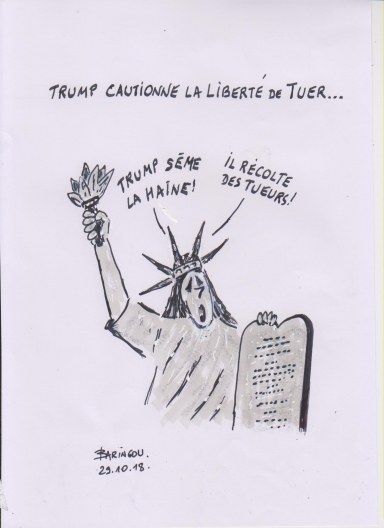 TRUMP CAUTIONNE LA LIBERTÉ DE TUER...
TRUMP SÈME
LA HAÎNE!
IL RÉCOLTE
DES TUEURS!
BARINGOU.
29.10.18.